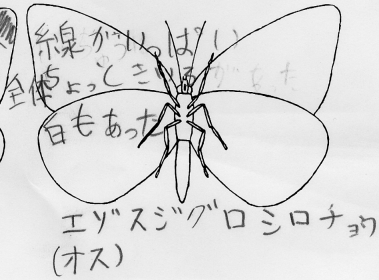 線がいっぱい
全体ちょっときいろがあった
白もあった
エゾスジグロシロチョウ
(オス)